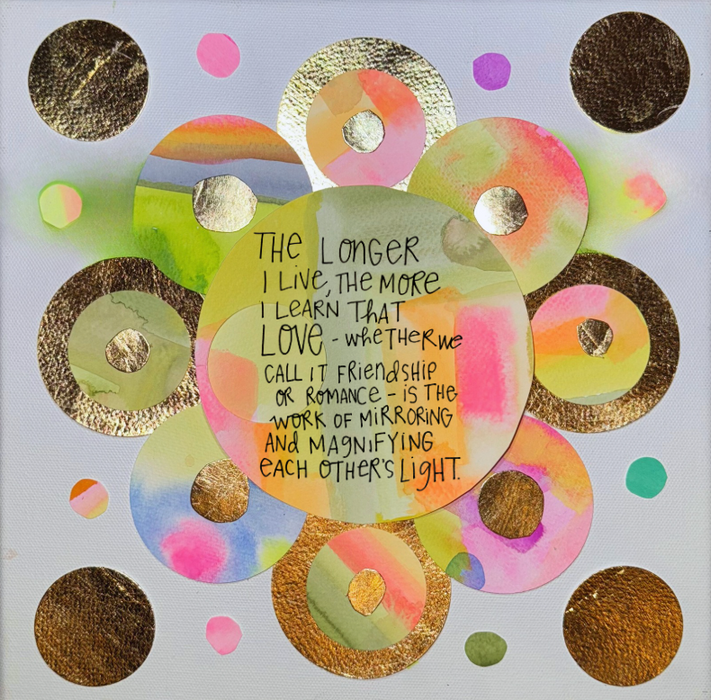 THE LONGER
I LIVE, THE MORE
I LEARN THAT
LOVE - WHETHER WE
CALL IT FRIENDSHIP
OR ROMANCE - IS THE
WORK OF MIRRORING
AND MAGNIFYING
EACH OTHER'S LIGHT.